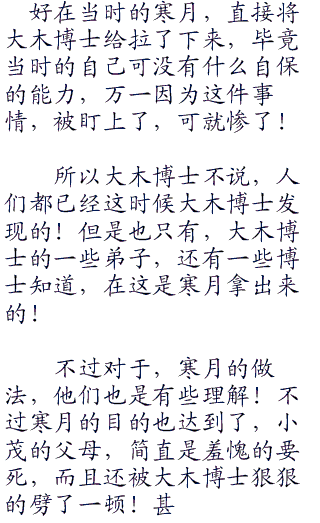 好在当时的寒月，直接将
大木博士给拉了下来，毕竟
当时的自己可没有什么自保
的能力，万一因为这件事
情，被盯上了，可就惨了！
所以大木博士不说，人
们都已经这时候大木博士发
现的！但是也只有，大木博
士的一些弟子，还有一些博
士知道，在这是寒月拿出来
的！
不过对于，寒月的做
法，他们也是有些理解！不
过寒月的目的也达到了，小
茂的父母，简直是羞愧的要
死，而且还被大木博士狠狠
的劈了一顿！甚